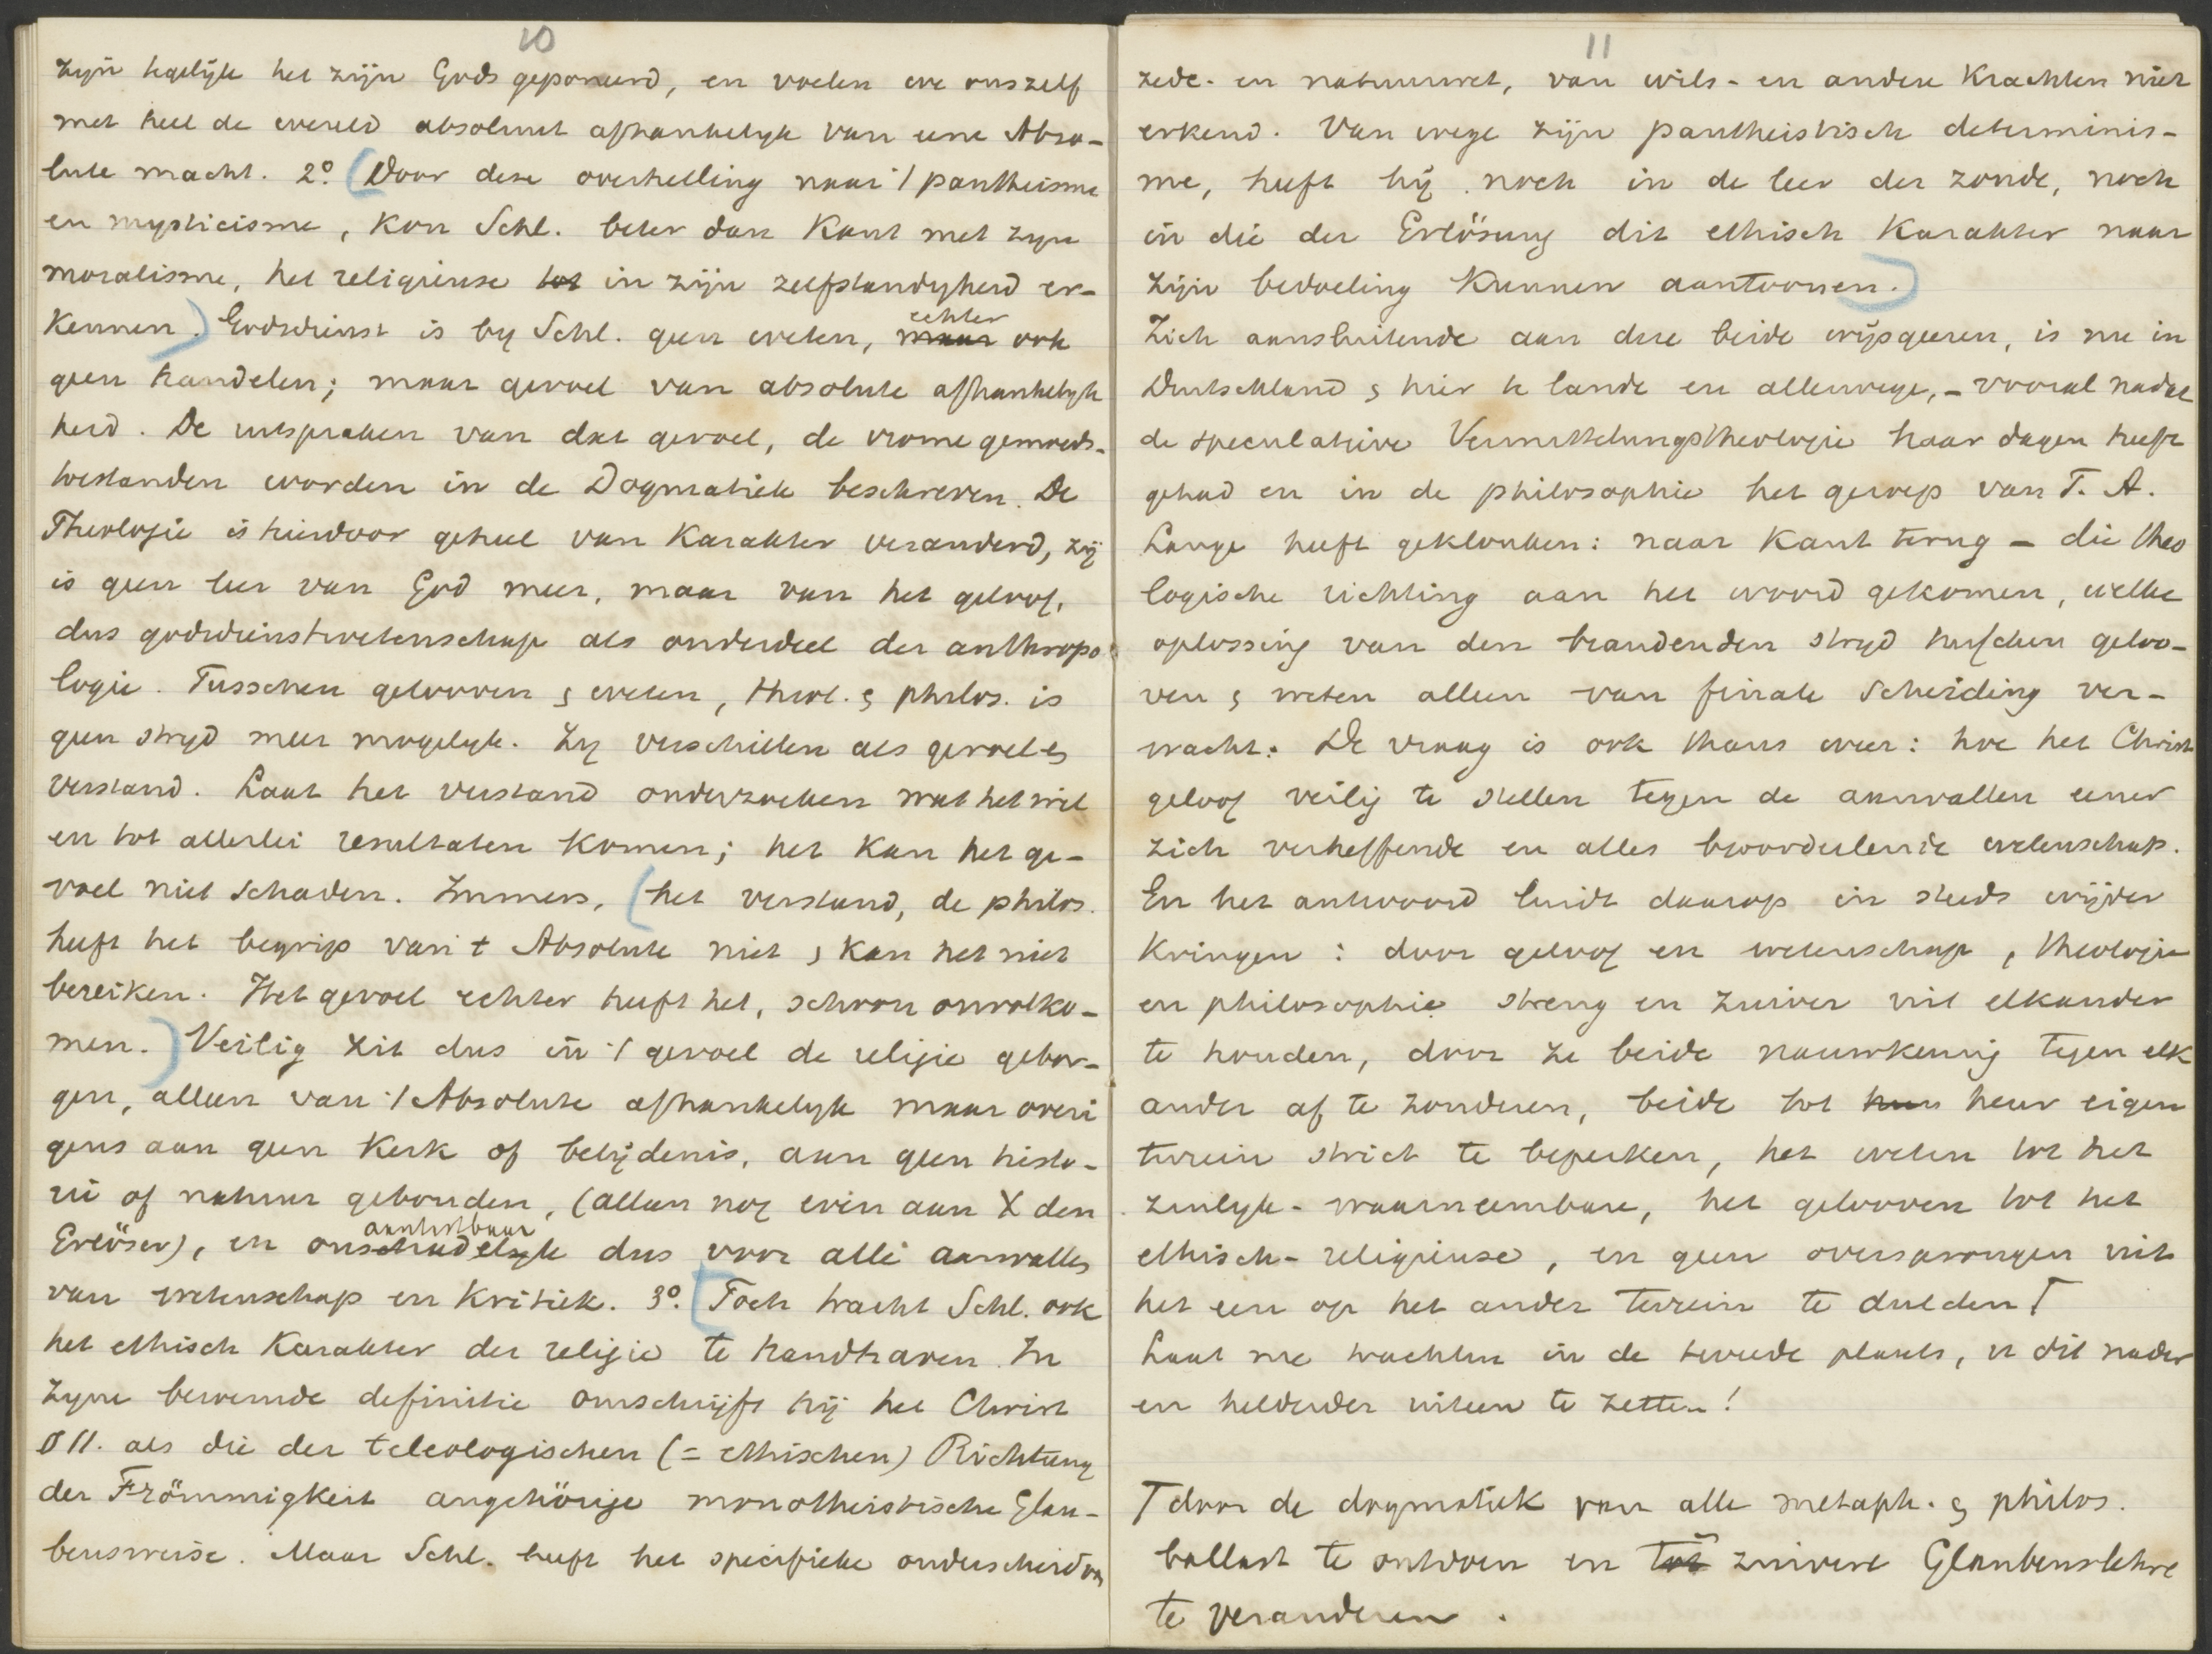 10
zijn tegelijk het zijn Gods geponeerd, en voelen we ons zelf
met heel de wereld absoluut afhankelyk van eene Abso-
lute macht. 2º. (Door deze overhelling naar 't pantheisme
en mysticisme, kon Schl. beter dan Kant met zyn
moralisme, het religieuse tot in zijn zelfstandyheid er-
kennen.) Godsdienst is by Schl. geen weten, maar echter ook
geen handelen; maar gevoel van absolute afhankelyk
heid. De uitspraken van dat gevoel, de vrome gemoeds-
toestanden worden in de Dogmatiek beschreven. De
Theologie is hierdoor geheel van karakter veranderd, zij
is geen leer van God meer, maar van het geloof,
dus godsdienstwetenschap als onderdeel der anthropo
logie. Tusschen gelooven & weten, theol. & philos. is
geen stryd meer mogelyk. Zy verschillen als gevoel &
verstand. Laat het verstand onderzoeken wat het wil
en tot allerlei resultaten komen; het kan het ge-
voel niet schaden. Immers, (het verstand, de philos.
heeft het begrip van 't Absolute niet & kan het niet
bereiken. Het gevoel echter heeft het, schoon onvolko-
men.) Veilig zit dus in 't gevoel de religie gebor-
gen, alleen van 't Absolute afhankelyk maar overi
gens aan geen kerk of belijdenis, aan geen histo-
rie of natuur gebonden, (alleen nog even aan X den
Erlöser), en onschadelyk aantastbaar dus voor alle aanvallen
van wetenschap en kritiek. 3º. [Toch tracht Schl. ook
het ethisch karakter der religie te handhaven. In
zyne beroemde definitie omschrijft hij het Christ
§ 11. als die der teleologischen (= ethischen) Richtung
der Frömmigkeit angehörige monotheistische Glau-
bensweise. Maar Schl. heeft het specifieke onderscheid van
11
zede- en natuurwet, van wils- en andere krachten niet
erkend. Van wege zijn pantheistisch determinis-
me, heeft hij noch in de leer der zonde, noch
in die der Erlösung dit ethisch karakter naar
zijn bedoeling kunnen aantoonen.)
Zich aansluitende aan deze beide wijsgeeren, is nu in
Duitschland & hier te lande en allerwege, - vooral nadat
de speculative Vermittelungstheologie haar dagen heeft
gehad en in de philosophie het geroep van F. A.
Lange heeft geklonken: naar Kant terug - die theo
logische richting aan het woord gekomen, welke
oplossing van den brandenden stryd tusschen geloo-
ven & weten alleen van finale scheiding ver-
wacht. De vraag is ook thans weer: hoe het Christ
geloof veilig te stellen tegen de aanvallen eener
zich verheffende en alles beoordeelende wetenschap.
En het antwoord luidt daarop in steeds wijder
kringen: door geloof en wetenschap, theologie
en philosophie streng en zuiver uit elkander
te houden, door ze beide nauwkeurig tegen elk
ander af te zonderen, beide tot hun heur eigen
terrein strict te beperken, het weten tot het
zinlyk-waarneembare, het gelooven tot het
ethisch-religieuse, en geen oversprongen uit
het een op het ander terrein te dulden Γ
Laat me trachten in de tweede plaats, u dit nader
en helderder uiteen te zetten!
Γ door de dogmatiek van alle metaph. & philos.
ballast te ontdoen en tot in zuivere Glaubenslehre
te veranderen.